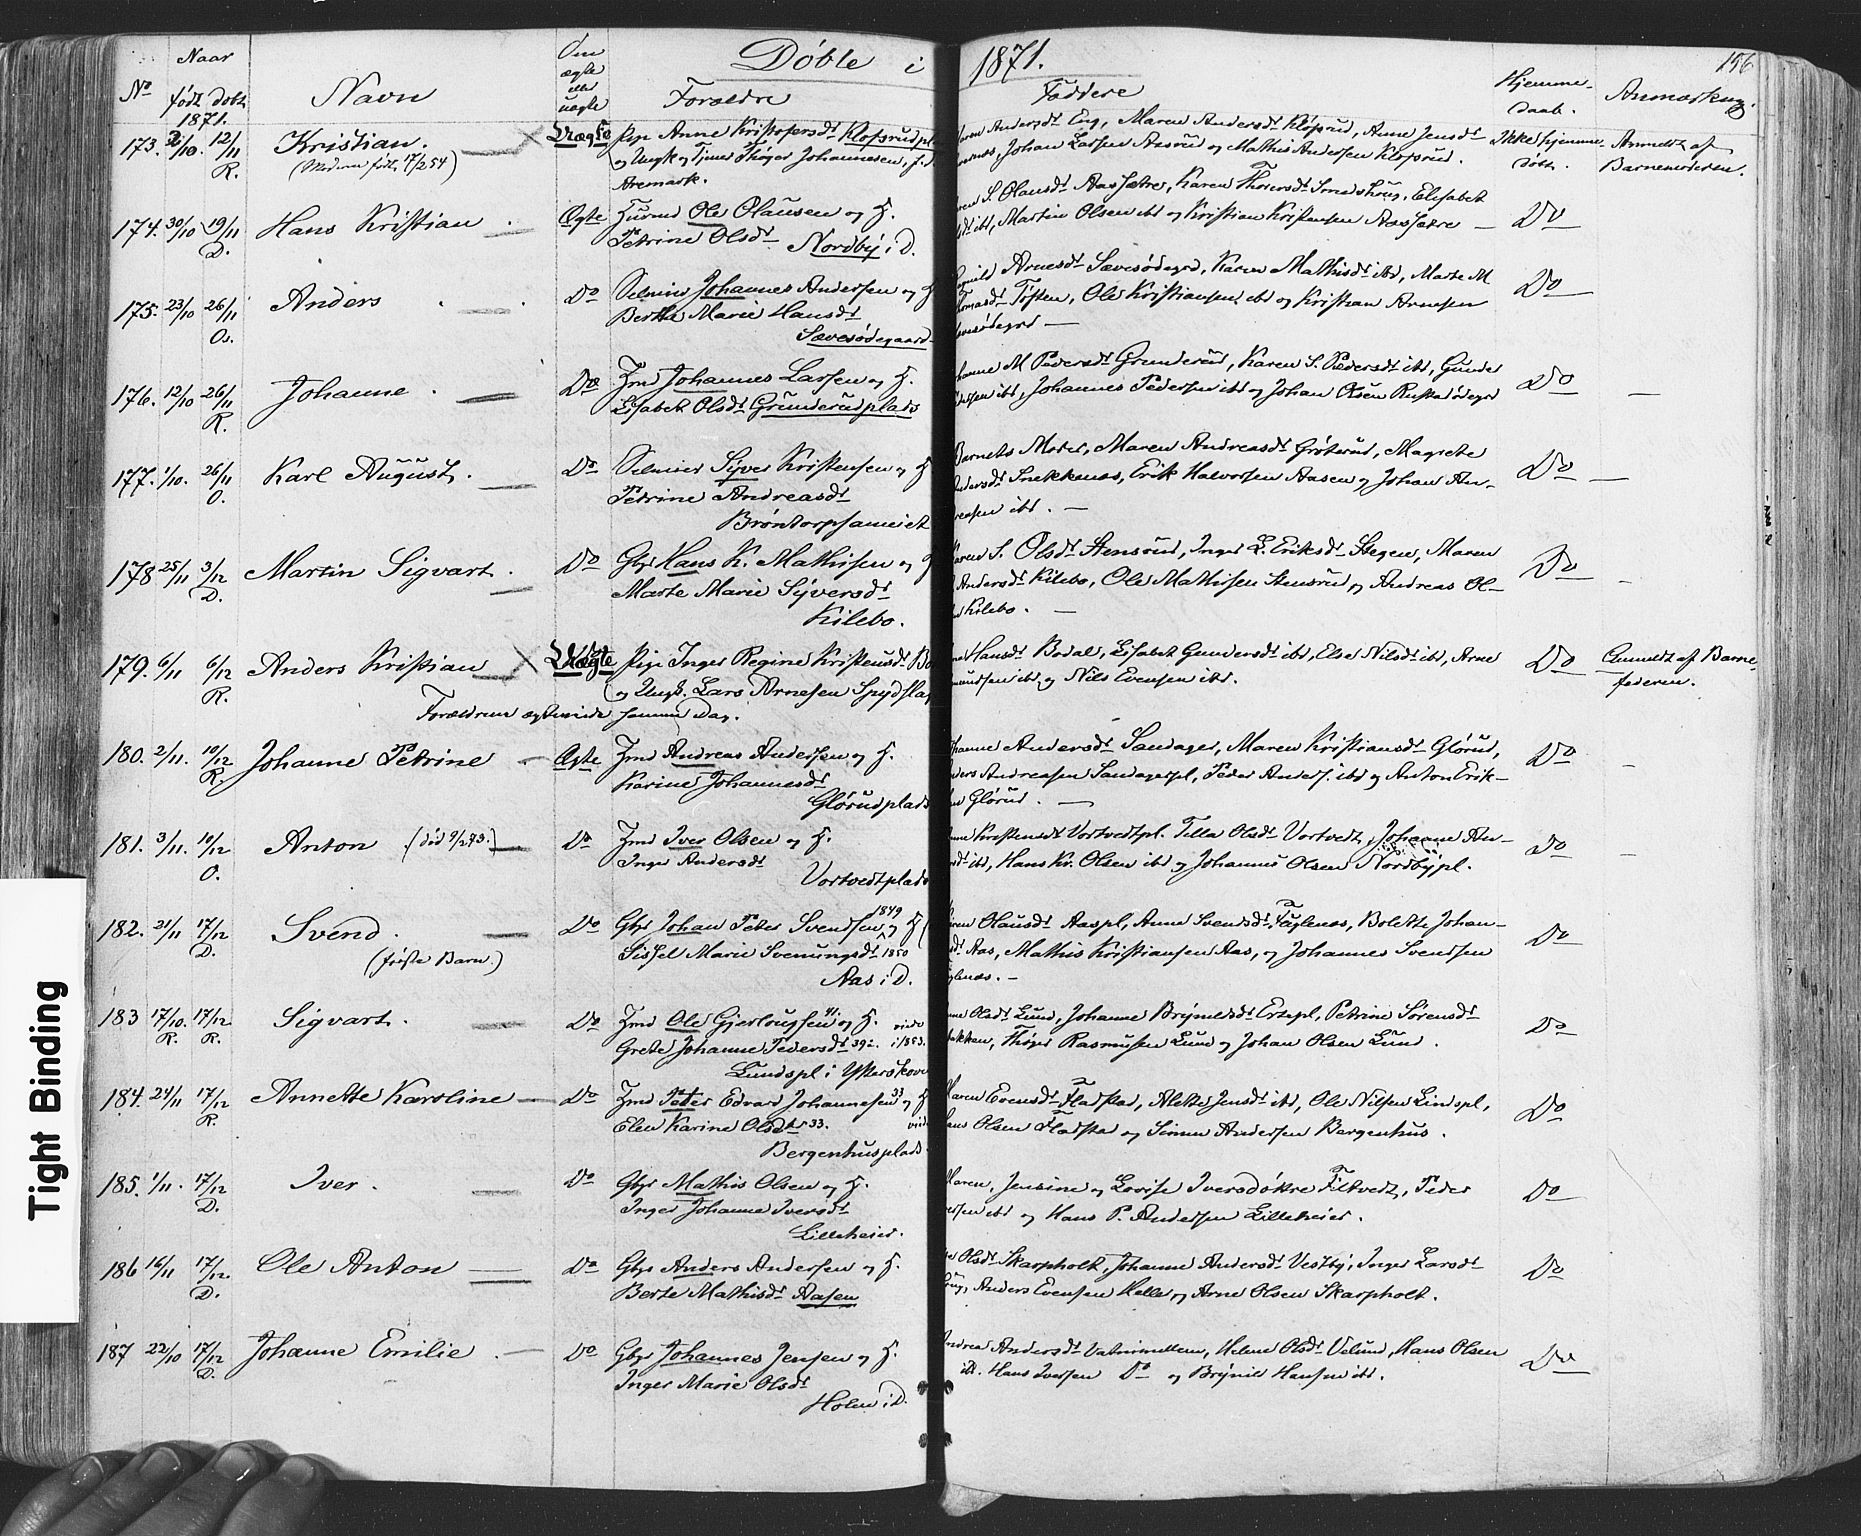 Døbte i 1871.
156
No
Naar
født døbt
1871.
Navn
Om ægte ell uægte
Forældre
Faddere
Hjemme-daab.
Anmærkng.
173. 2/10. 12/11 R. Kristian. Uægte Pige Anne Kristofersdt Klopsrudpl
(Moderen født 17/2 54) og Ungk og Tjener Thøger Johannesen, f. i
Aremark.
Andersdt Eng, Maren Andersdt Klopsrud, Anne Jensdt Ikke hjemme- Anmeldt af
Johan Larsen Aasrud og Mathis Andersen Klopsrud. døbt. Barnemoderen.
174. 30/10 19/11 D. Hans Kristian. Ægte Husmd Ole Olausen og H.
Petrine Olsdt Nordby i D.
S. Olausdt Aassætre, Karen Thoresdt Smedshaug, Elisabet
ibt, Martin Olsen ibt og Kristian Kristensen Aassætre — Do
175. 23/10 26/11 Os. Anders Do Selveier Johannes Andersen og H
Berthe Marie Hansdt
Sævesødegaard
Arnesdt Sævesødegrd, Karen Mathisdt ibt, Marte M Do
Tøften, Ole Kristiansen ibt og Kristian Arnesen
—
176. 12/10 26/11 R. Johanne. Do Hmd Johannes Larsen og H.
Elisabet Olsdt Grunderudplads
M Pedersdt Grunderud, Karen S. Pedersdt ibt, Gunder Do —
ibt, Johannes Pedersen ibt og Johan Olsen Rustadødegrd
177. 1/10. 26/11 O. Karl August. Do Selveier Syver Kristensen og H
Petrine Andreasdt
Brøntorpsameiet
Barnets Moder, Maren Andreasdt Grøterud, Magrete Do —
Snekkenes, Erik Halvorsen Aasen og Johan An-
ibt. —
178 25/11 3/12 D. Martin Sigvart. Do Gbr Hans K. Mathisen og H
Marte Marie Syversdt
Kilebo.
S. Olsdt Stensrud, Inger L. Eriksdt Stegen, Maren Do —
Andersdt Kilebo, Ole Mathisen Stensrud og Andreas Ol-
Kilebo. —
179. 6/11 6/12 R. Anders Kristian Uægte Pige Inger Regine Kristensdt Bo
og Ungk. Lars Arnesen Spydslag
Forældrene ægteviede samme Dag.
Hansdt Bodal, Elisabet Gundersdt ibt, Else Nilsdt ibt, Arne Do Anmeldt af Barne-
ibt og Nils Evensen ibt. faderen.
180. 2/11. 10/12 R. Johanne Petrine — Ægte Hmd Andreas Andersen og H.
Karine Johannesdt
Glørudplads
Andersdt Sandager, Maren Kristiansdt Glørud, Do —
Andreasen Sandagerpl, Peder Anders. ibt og Anton Erik-
Glørud. —
181. 3/11. 10/12 O. Anton (død 9/2 93.) Do Hmd Iver Olsen og H.
Inger Andersdt
Vortvedtplads
Kristensdt Vortvedtpl. Tilla Olsdt Vortvedt, Johanne An- Do —
ibt, Hans Kr. Olsen ibt og Johannes Olsen Nordbypl.
182. 21/11 17/12 D. Svend. Do Gbr Johan Peter Svendsen 1849 og H
(første Barn.) Sissel Marie Svenungsdt 1850
Aas i D.
Olausdt Aaspl, Anne Svensdt Fuglenes, Bolette Johan- Do
Aas, Mathis Kristiansen Aas, og Johannes Svendsen
—
183 17/10. R. 17/12. R. Sigvart. Do Hmd Ole Gjerlougsen 41 og H. viede
Grete Johanne Pedersdt 39 i 1853.
Lundspl i Ytterskove
Olsdt Lund, Johanne Brynildsdt Ertepl, Petrine Sørensdt Do
Thøger Rasmusen Lund og Johan Olsen Lund.
184. 24/11 17/12 R. Annette Karoline — Do Hmd Peter Edvard Johannesen 33 og H
Elen Karine Olsdt 33.
Bergenhusplads
Evensdt Fladstad, Alette Jensdt ibt, Ole Nilsen Lindspl, Do
Olsen Fladstad og Simen Andersen Bergenhus.
185. 1/11. 17/12 D. Iver. Do Gbr Mathis Olsen og H.
Inger Johanne Iversdt
Lilleheier.
Maren, Jensine og Lovise Iversdøtre Filtvedt, Peder Do
ibt og Hans P. Andersen Lilleheier.
186 16/11 17/12. D. Ole Anton — Do Gbr Anders Andersen og H.
Berte Mathisdt Aasen
Olsdt Skarpholt, Johanne Andersdt Vestby, Inger Larsdt Do
Anders Evensen Helle og Arne Olsen Skarpholt.
187 22/10 17/12 D. Johanne Emilie. Do Gbr Johannes Jensen og H.
Inger Marie Olsdt
Holen i D.
Andersdt Vatvimellem, Helene Olsdt Velund, Hans Olsen Do
Hans Iversen Do og Brynild Hansen ibt.
Tight Binding